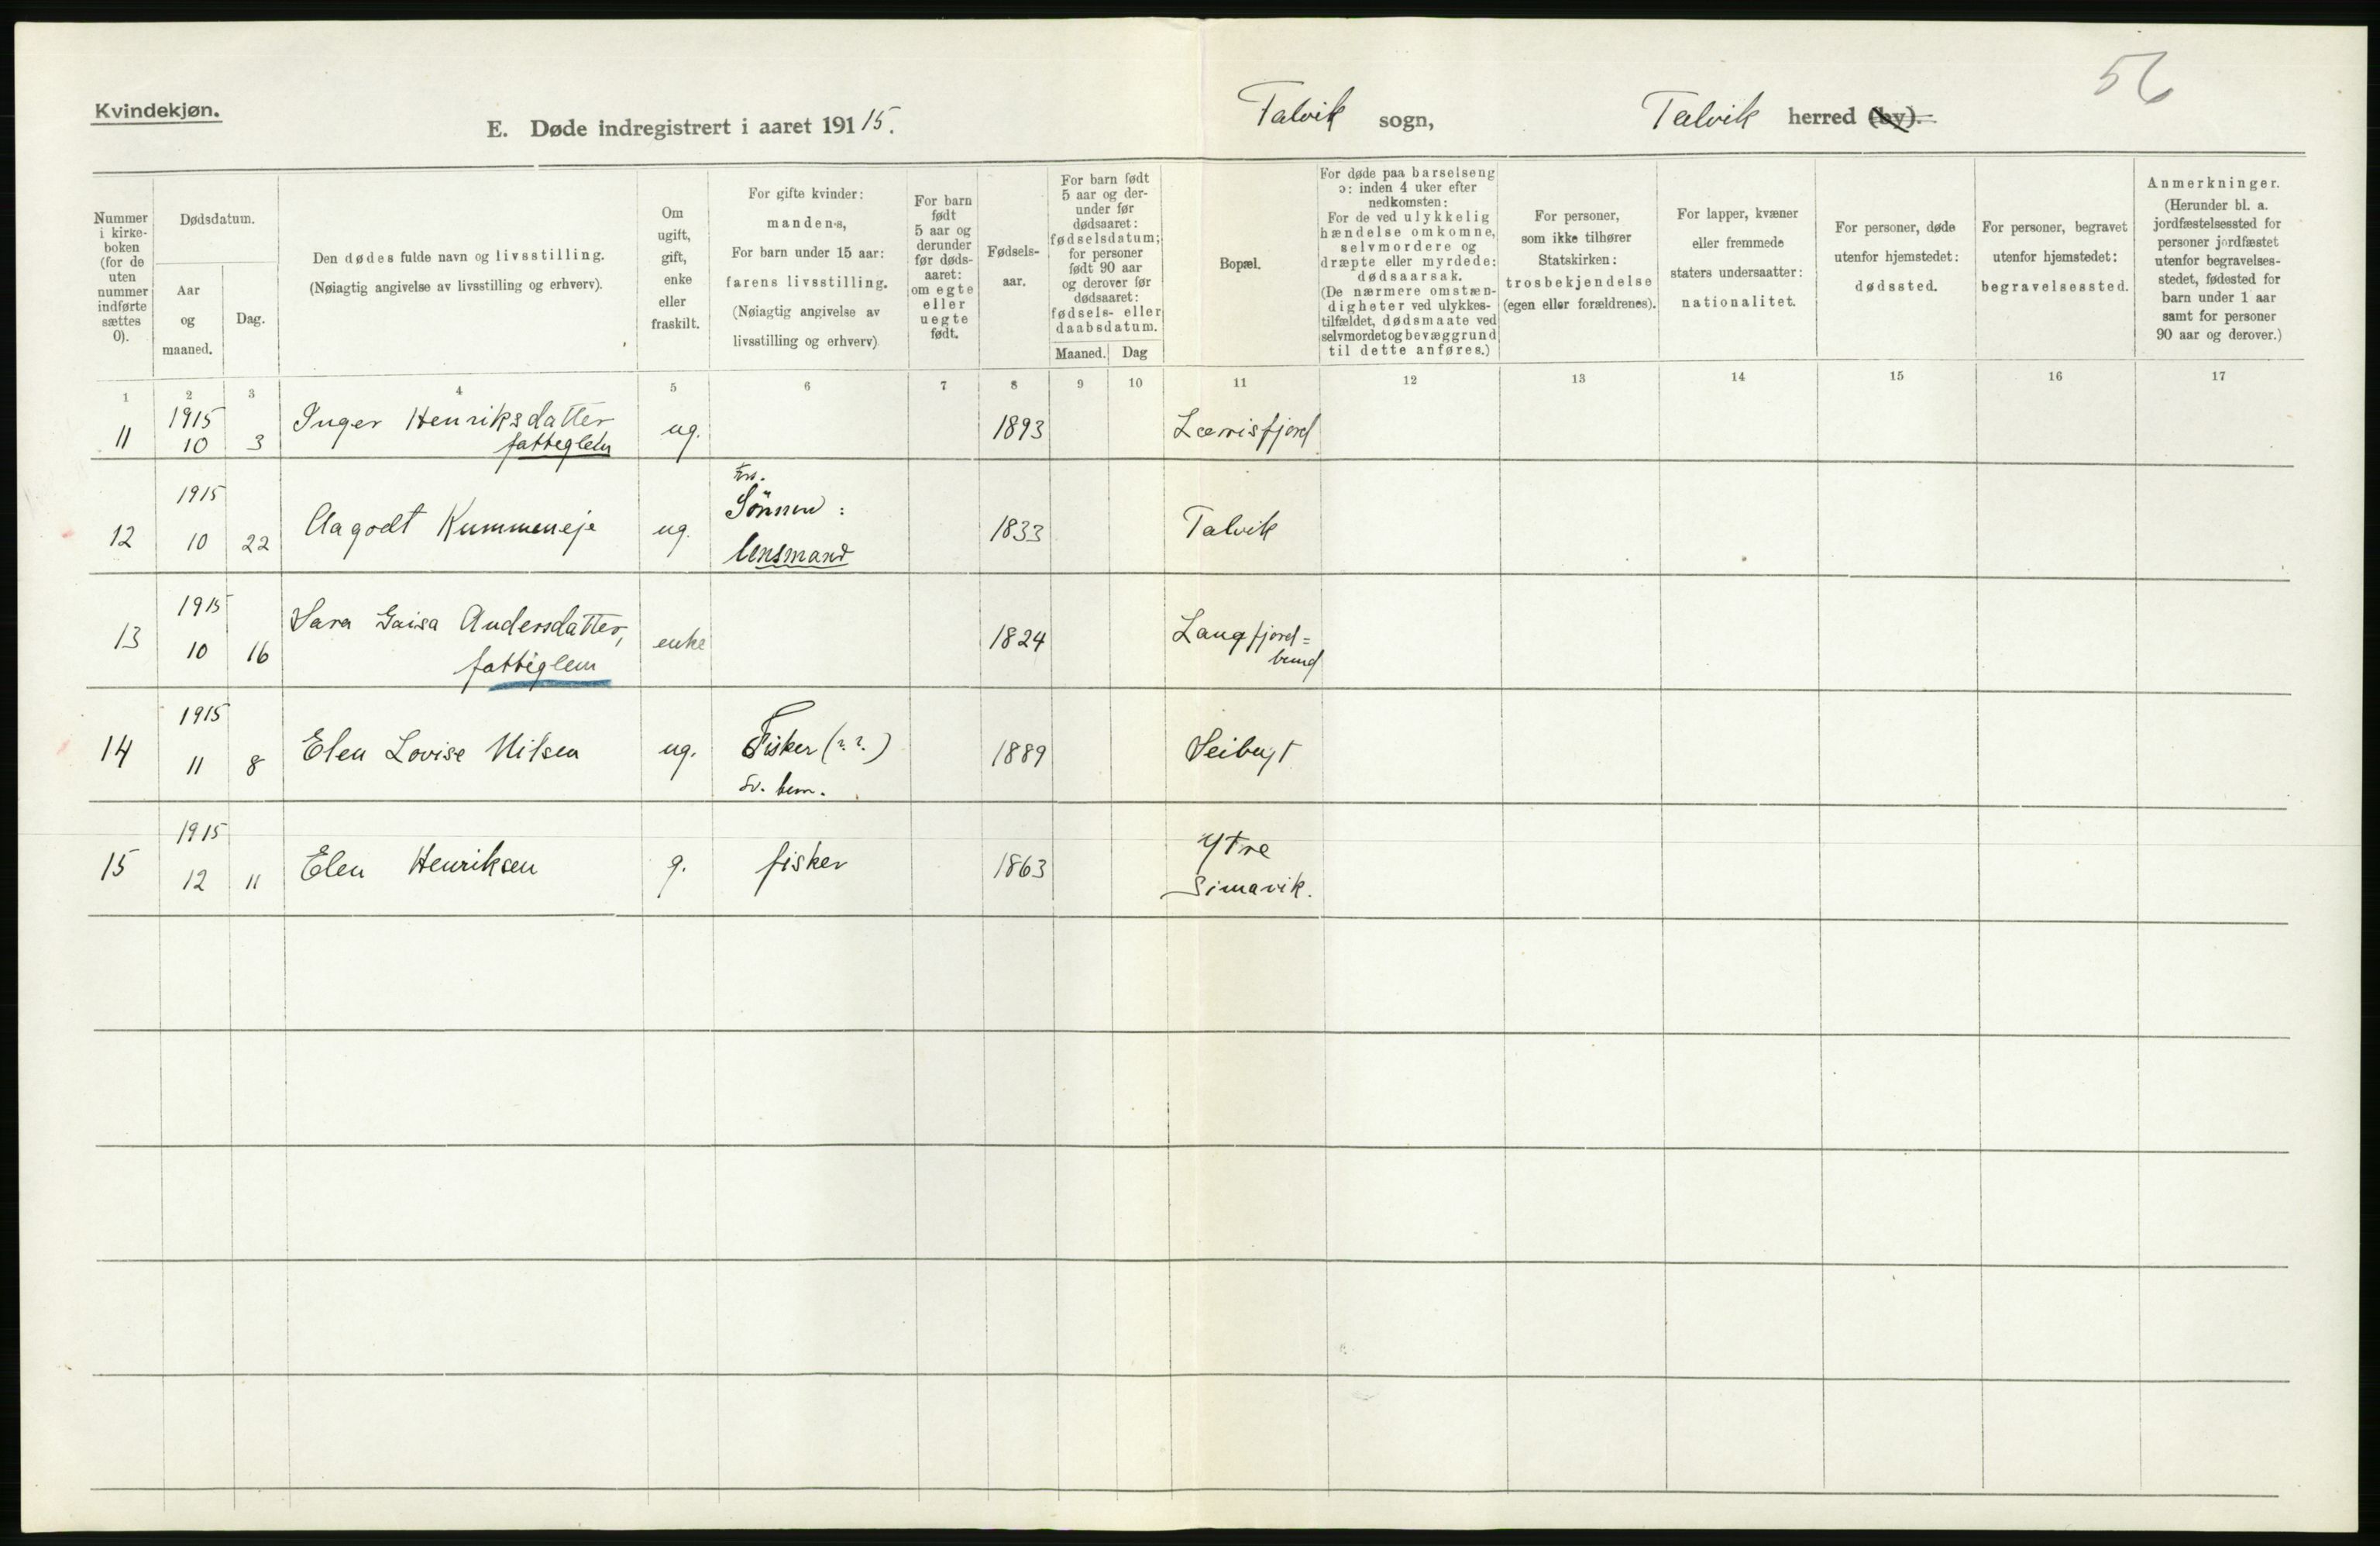 56
Kvindekjøn.
E. Døde indregistrert i aaret 19115.
Talvik sogn,
Talvik herred (by).
Nummer i kirke-boken (for de uten nummer indførte sættes 0).
Dødsdatum.
Aar og maaned.
Dag.
Den dødes fulde navn og livsstilling.
(Nøiagtig angivelse av livsstilling og erhverv).
Om ugift, gift, enke eller fraskilt.
For gifte kvinder:
mandens,
For barn under 15 aar:
farens livsstilling.
(Nøiagtig angivelse av
livsstilling og erhverv)
For barn født 5 aar og derunder før døds-aaret: om egte eller uegte født.
Fødsels-aar.
For barn født 5 aar og der-under før dødsaaret: fødselsdatum; for personer født 90 aar og derover før dødsaaret: fødsels- eller daabsdatum.
Maaned. Dag
Bopæl.
For døde paa barselseng
ɔ: inden 4 uker efter
nedkomsten:
For de ved ulykkelig
hændelse omkomne,
selvmordere og
dræpte eller myrdede:
dødsaarsak.
(De nærmere omstæn-
digheter ved ulykkes-
tilfældet, dødsmaate ved
selvmordet og bevæggrund
til dette anføres.)
For personer,
som ikke tilhører
Statskirken:
trosbekjendelse
(egen eller forældrenes).
For lapper, kvæner
eller fremmede
staters undersaatter:
nationalitet.
For personer, døde
utenfor hjemstedet:
dødssted.
For personer, begravet
utenfor hjemstedet:
begravelsessted.
Anmerkninger.
(Herunder bl. a.
jordfæstelsessted for
personer jordfæstet
utenfor begravelses-
stedet, fødested for
barn under 1 aar
samt for personer
90 aar og derover.)
1 2 3 4 5 6 7 8 9 10 11 12 13 14 15 16 17
11 1915 10 3 Inger Henriksdatter fattiglem ug. 1893
12 1915 10 22 Aagodt Kummeneje ug. Sönnen: lensmand 1833 Talvik
13 1915 10 16 Sara Gaisa Andersdatter, fattiglem enke 1824 Langfjord=bund
14 1915 11 8 Elen Lovise Nilsen ug. Fisker (?.?.) 1889 Seibugt
15 1915 12 11 Elen Henriksen g. fisker 1863 Ytre Simavik.